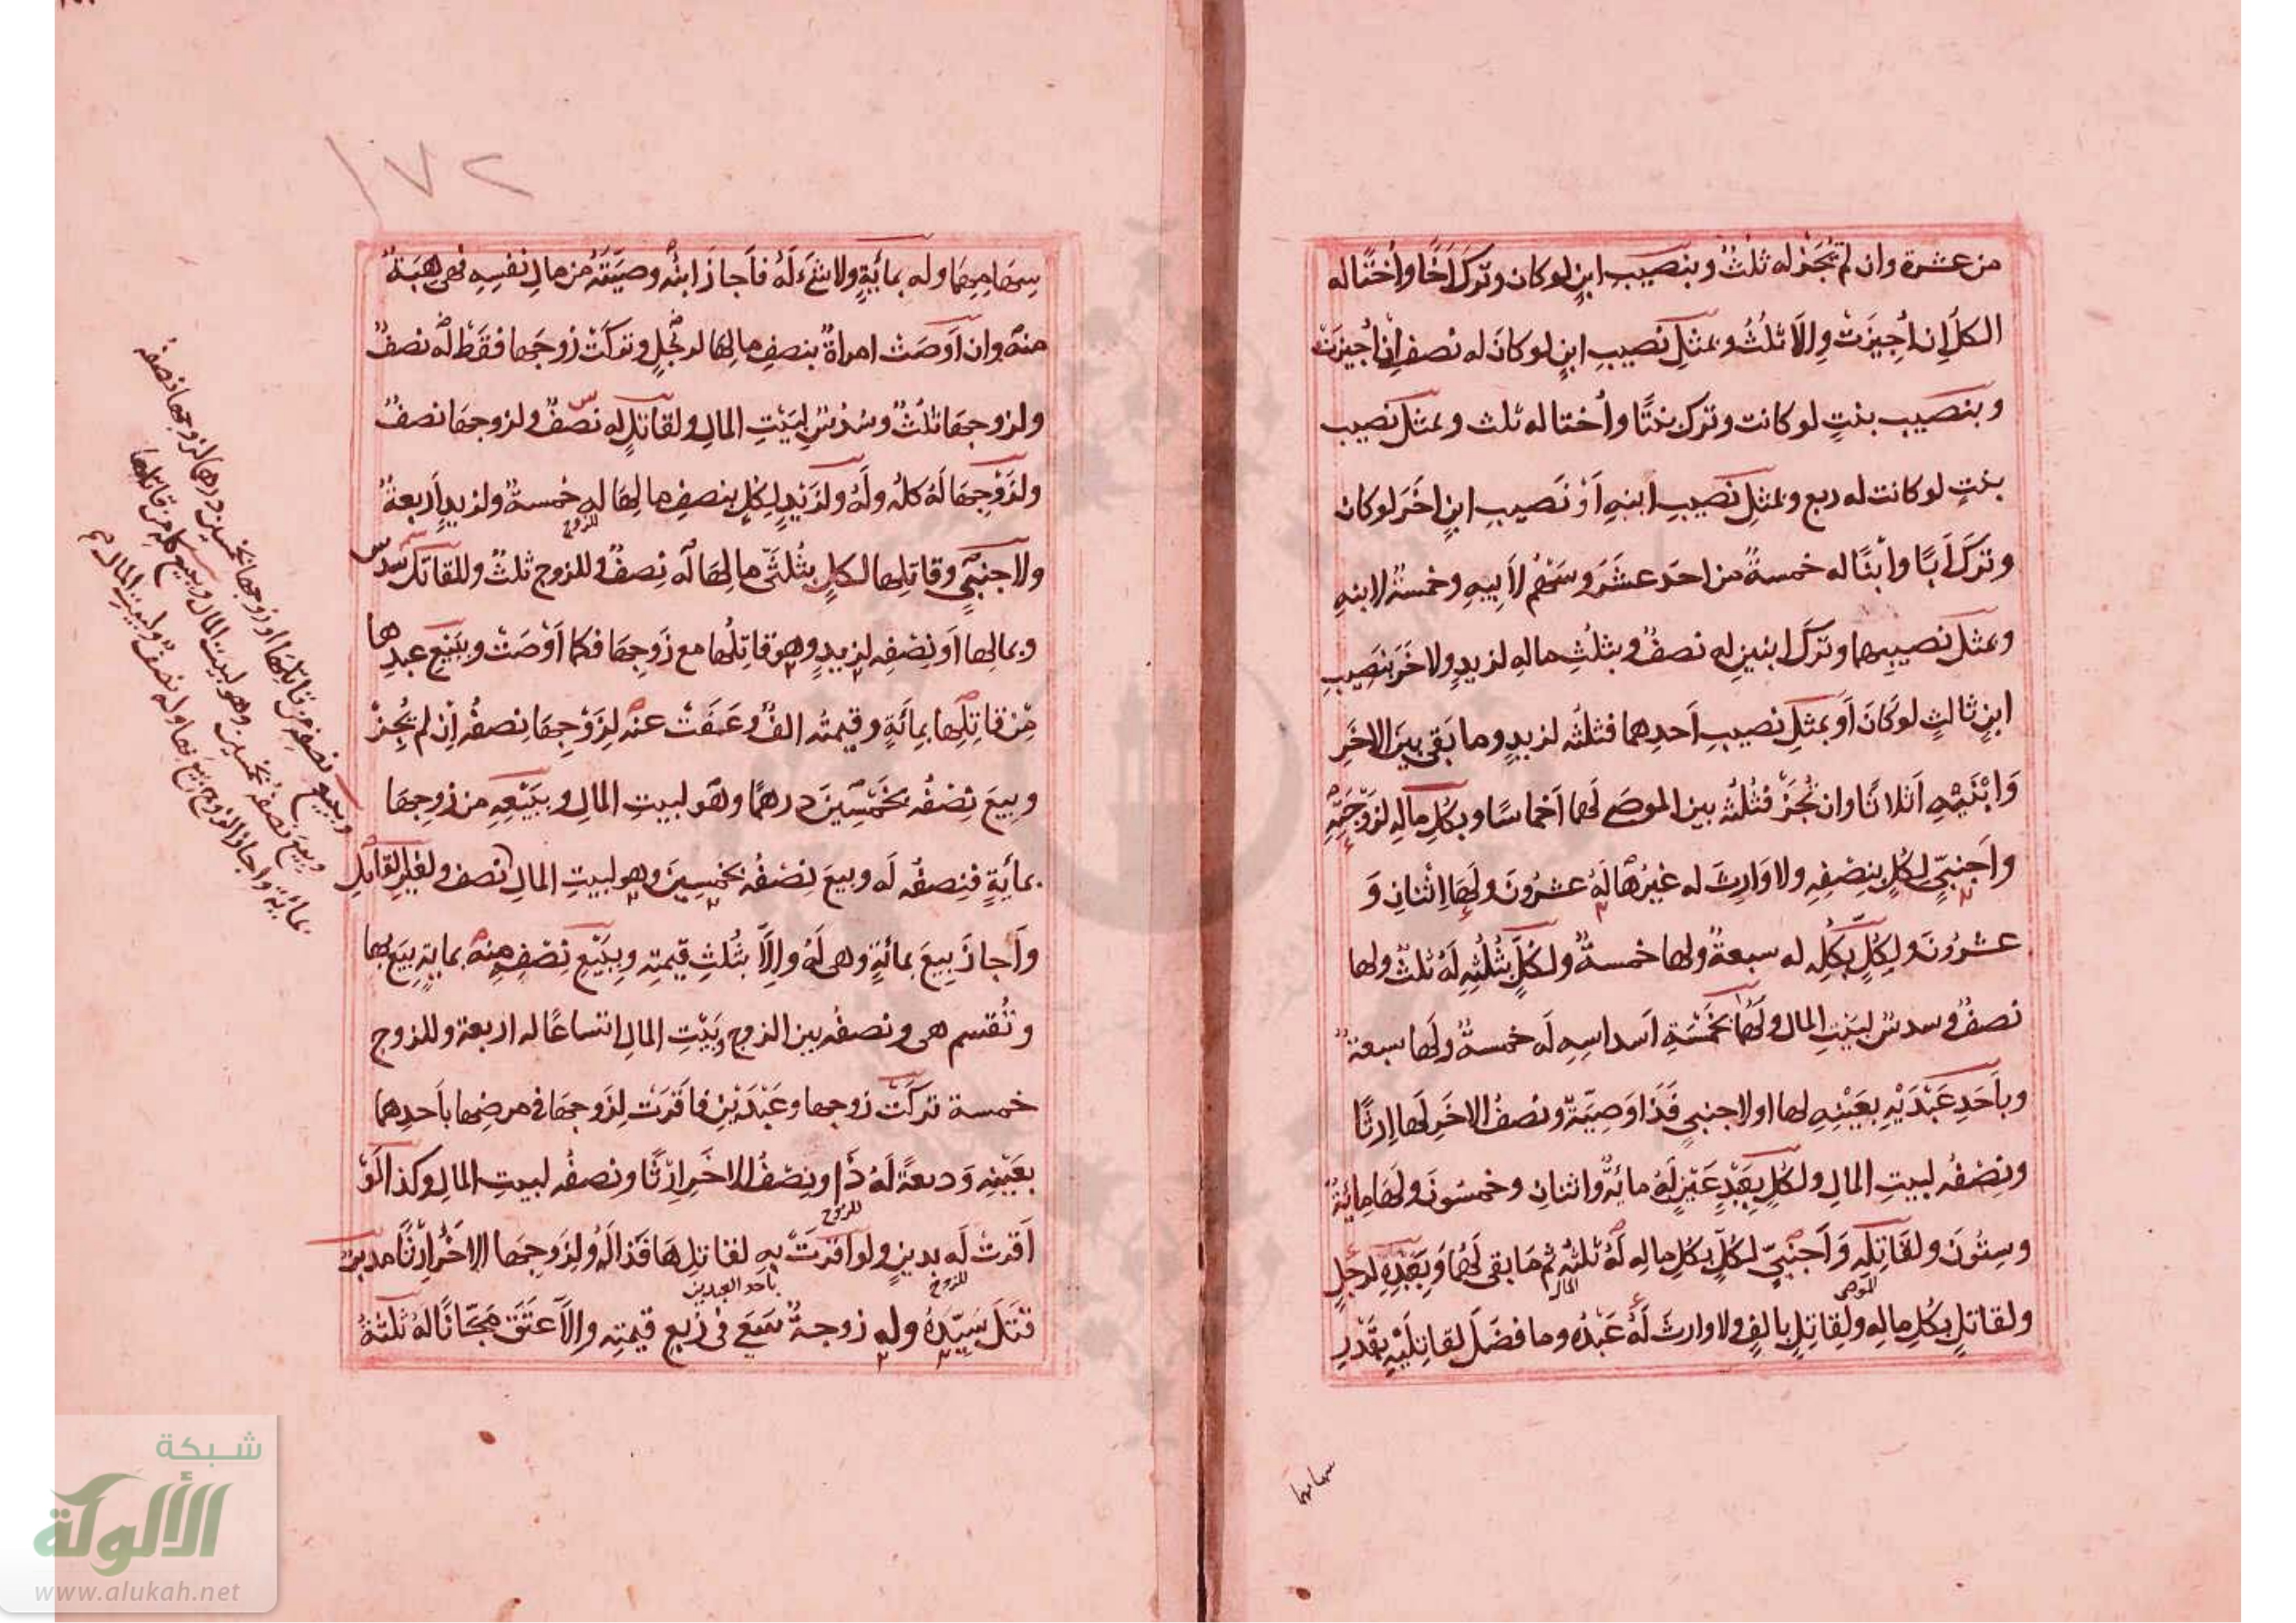 من عشرة وان لم تُجَز له ثلثٌ وبنصيبِ ابنٍ لو كان وتركَ اَخًا واُختًا له
الكلّ اِن اُجِيزَتْ والّا ثلُثٌ وبمثلِ نَصيبِ ابنٍ لو كانَ له نصف اِن اُجيزَتْ
وبنصيبِ بنتٍ لو كانت وترك بنتًا واُختا له ثلث وبمثل نصيب
بنتٍ لو كانت له ربع وبمثلِ نصيبِ ابنهِ اَوْ نَصيبِ ابنٍ اخَرَ لو كان
وتركَ اَبًا وابْنًا له خمسةٌ من احد عَشَرَ وسَهْمٌ لاَبيهِ وخمسةٌ لابنهِ
وبمثل نصيبهما وترَكَ ابنين له نصفٌ وبثلُثِ ماله لزيدٍ ولاخَرَ بنَصِيبِ
ابنٍ ثالثٍ لو كانَ اَو بمثلِ نصيبِ اَحدِهما فثلثُه لزيدٍ وما بَقِى بينَ الاخَرِ
وَابْنَيْهِ اَثلاثًا وان تُجَزْ فثُلثُه بين الموصَى لَهما اَخماسًا وبكُلِ مالهِ لزَوْجَتِه
واَجنبىٍّ لكُلٍ بنِصْفِهِ ولا وَارِثَ له غيرُها لَهُ عشرُونَ ولَها اِثْنانِ وَ
عشرُونَ ولكلٍّ بكُلِه له سبعةٌ ولها خمسةٌ ولكُلٍّ بثُلُثِهِ لَهُ ثلثٌ ولها
نصفٌ وسدسٌ لبيتِ المال ولَهُما بخَمْسَةِ اَسداسِهِ لَه خمسةٌ ولَها سبعةٌ
وباَحَدِ عَبْدَيْهِ بعَيْنِهِ لها او لاجنبىٍ فَذَا وَصِيّةٌ ونصفُ الاخَرِ لَها اِرثًا
ونِصْفُه لبيتِ المالِ ولكُلٍ بعَبْدٍ عَيْنٍ لَهُ مائةٌ واثنانِ وخمسُونَ ولَها مِائَةٌ
وستُونَ ولقَاتِلِه وَاَجنبىٍّ لكُلٍّ بكُلِ مالِه لَهُ ثلثُه ثم مَا بقى لَهُما وَبِعَبْدِهِ لرجلٍ
للموصى
المال
ولقاتلٍ بكُلِ مالهِ ولِقاتِلٍ بالفٍ ولا وارثَ لَهُ عَبْدُه وما فضَلَ لقاتِلَيْهِ بقَدْرِ
سهامهما
١٧٢
سِهَامِهِمَا وله بمائةٍ ولا شَئَ لَهُ فاَجازَ ابنُه وصيَّتَهُ من مالِ نفسِهِ فهى هِبَةٌ
منه وان اَوصَتْ امراةٌ بنصفِ مالِها لرجُلٍ وتركَتْ زوجَها فقَطْ له نصفٌ
ولزوجِها ثلُثٌ وسُدُسٌ لبَيْتِ المالِ ولقاتلٍ له نصفٌ ولزوجِها نصفٌ
ولزَوْجِهَا لَهُ كلُه ولَهُ ولزَيْدٍ لِكُلٍ بنصفِ مالِهَا له خمسةٌ ولزيدٍ اَربعةٌ
للزوج
ولاجنبىٍّ وقاتِلِها لكلٍ بثُلثَىْ مالِها له نِصفٌ وللزوج ثلثٌ وللقاتل سُدس
وبمالِها اَو نِصْفِه لزيدٍ وهو قاتِلُها مع زَوجِها فكما اَوْصَتْ وبِبَيْعِ عبدِها
مِنْ قاتِلِها بمِائَةٍ وقيمتُه الفٌ وعَفَتْ عنه لِزَوْجِها نصفُه اِن لم يُجِزْ
وبيعَ نِصْفُه بخَمْسِينَ درهمًا وهُو لبيتِ المالِ وبِبَيْعِهِ من زوجِها
بمائةٍ فنِصفُه له وبيعَ نِصْفُه بخمسينَ وهو لبيتِ المالِ نصف ولغيرِ القاتلِ
واَجازَ بيعَ بمائةٍ وهى لَهُ والّا بثُلثِ قيمتِه وبِبَيْعِ نِصْفِهِ منه بمايةٍ بيعَ بها
وتُقسم هى ونصفُه بين الزوج وبَيْتِ المالِ اتساعًا له اربعة وللزوج
خمسة تركَتْ زوجها وعَبْدَيْنِ فاقرَتْ لزَوجِها فى مرضِها باَحدِهما
بعَيْنِهِ وَديعةً لَهُ ذَا ونِصْفُ الاخَرِ اِرْثًا ونصفُه لبيتِ المالِ وكذا لَوْ
للزوج
اَقرتْ لَه بدينٍ ولو اقرَتْ به لقاتلِهَا فَذا لَهُ ولِزَوجِهَا الاخَرُ اِرْثًا مدبرٌ
للزوج
باحد العبدين
قتَلَ سَيِّدَهُ وله زوجةٌ سَعَى فى رُبعِ قيمتِه واِلّا عَتَقَ مجّانًا لهُ ثلثةُ
وبيعَ نصفِه من قاتِلِها او زوجها بخمسين درهما لزوجها نصفه
وبيعَ نصفُه بخمسين وهو لبيت المال وببيع كله من قاتلها
بمائةٍ واجاز الزوج بيعَ بها وله نصفٌ ولبيتِ المال م
شبكة
الألوكة
www.alukah.net